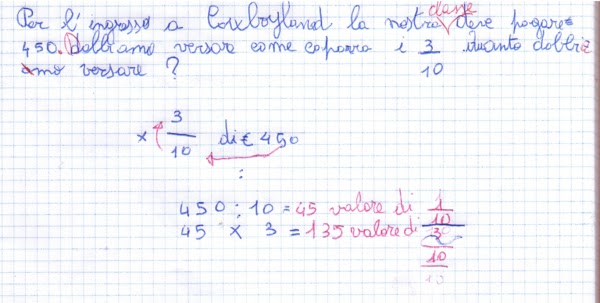 Per l'ingresso a Cowboyland la nostra classe deve pagare €
450. Dobbiamo versare come caparra i 3/10 quanto dobbi=
amo versare ?
× 3/10 di € 450
:
450 : 10 = 45 valore di 1/10
45 × 3 = 135 valore di 3/10
10